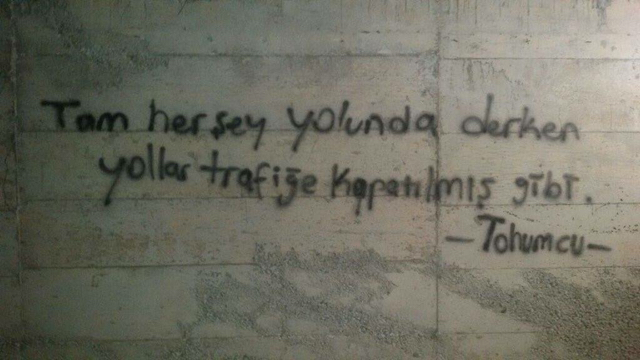 Tam herşey yolunda derken
yollar trafiğe kapatılmış gibi.
-Tohumcu-